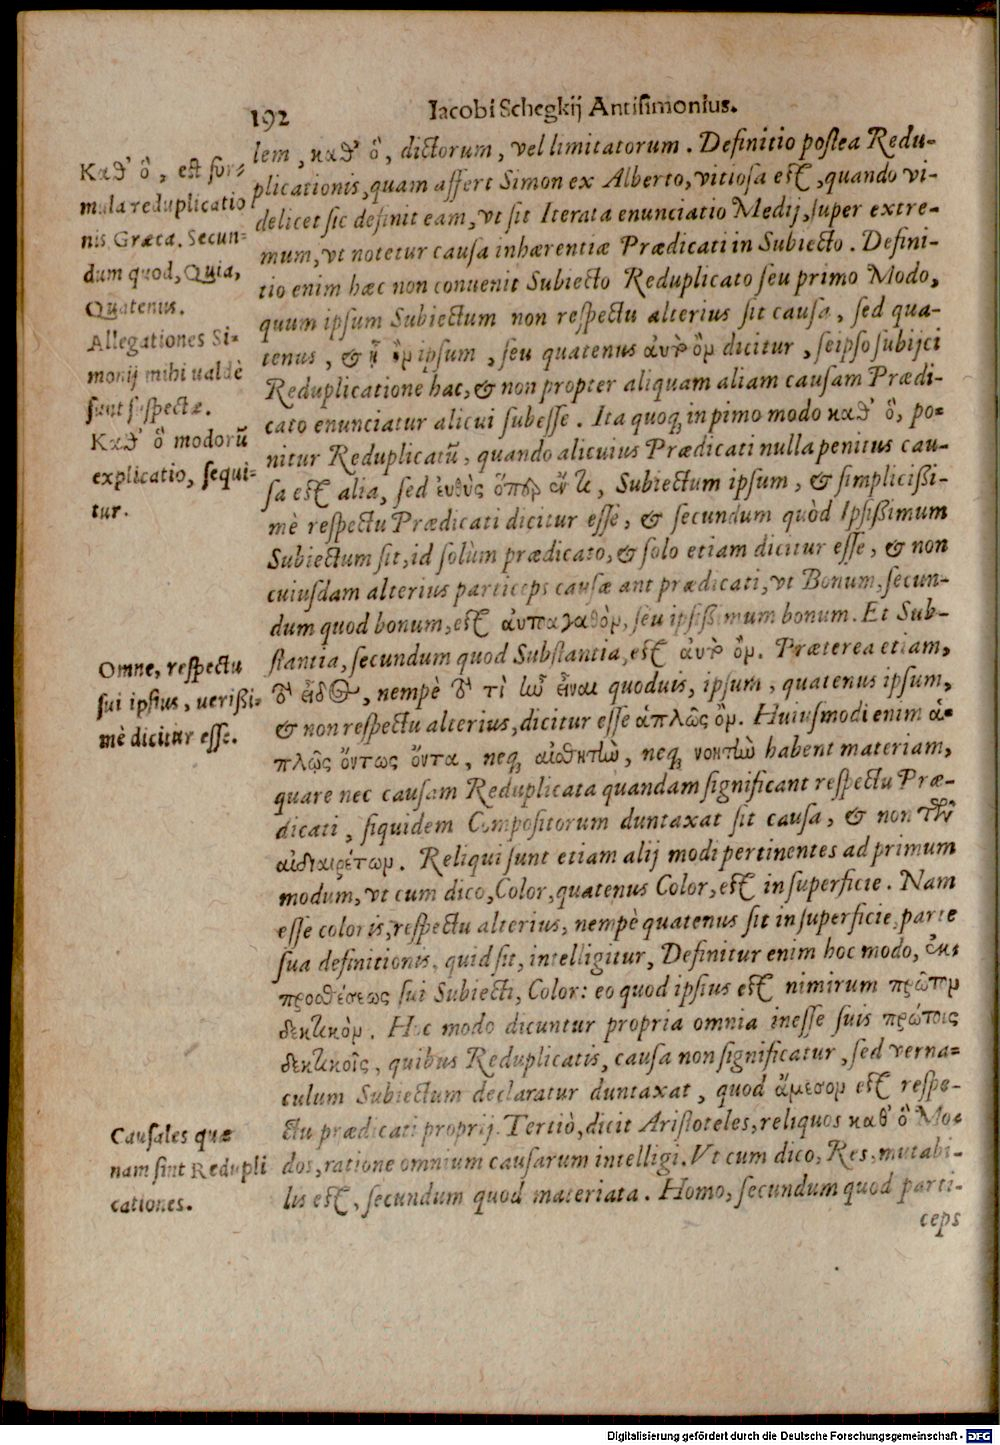 192
Iacobi Schegkij Antisimonius.
Καθ' ὃ, est for-
mula reduplicatio
nis Græca. Secun-
dum quod, Quia,
Quatenus.
Allegationes Si-
monij mihi ualdè
sunt suspectæ.
Καθ' ὃ modorũ
explicatio, sequi-
tur.
lem, καθ' ὃ, dictorum, vel limitatorum. Definitio postea Redu-
plicationis, quam affert Simon ex Alberto, vitiosa est, quando vi-
delicet sic definit eam, vt sit Iterata enunciatio Medij, super extre-
mum, vt notetur causa inhærentiæ Prædicati in Subiecto. Defini-
tio enim hæc non conuenit Subiecto Reduplicato seu primo Modo,
quum ipsum Subiectum non respectu alterius sit causa, sed qua-
tenus, & ᾗ ὂν ipsum, seu quatenus αὐτὸ ὂν dicitur, seipso subijci
Reduplicatione hac, & non propter aliquam aliam causam Prædi-
cato enunciatur alicui subesse. Ita quoq; in pimo modo καθ' ὃ, po-
nitur Reduplicatũ, quando alicuius Prædicati nulla penitus cau-
sa est alia, sed εὐθὺς ὅπερ ἕν τι, Subiectum ipsum, & simplicißi-
mè respectu Prædicati dicitur esse, & secundum quòd Ipsißimum
Subiectum sit, id solùm prædicato, & solo etiam dicitur esse, & non
cuiusdam alterius particeps causæ ant prædicati, vt Bonum, secun-
dum quod bonum, est αὐτοαγαθὸν, seu ipsißimum bonum. Et Sub-
stantia, secundum quod Substantia, est αὐτὸ ὂν. Præterea etiam,
Omne, respectu
sui ipsius, uerißi-
mè dicitur esse.
τὸ εἶδος, nempè τὸ τὶ ἦν εἶναι quoduis, ipsum, quatenus ipsum,
& non respectu alterius, dicitur esse ἁπλῶς ὂν. Huiusmodi enim ἁ-
πλῶς ὄντως ὄντα, neq; αἰσθητὴν, neq; νοητὴν habent materiam,
quare nec causam Reduplicata quandam significant respectu Præ-
dicati, siquidem Compositorum duntaxat sit causa, & non τῶν
ἀδιαιρέτων. Reliqui sunt etiam alij modi pertinentes ad primum
modum, vt cum dico, Color, quatenus Color, est in superficie. Nam
esse coloris, respectu alterius, nempè quatenus sit in superficie, parte
sua definitionis, quid sit, intelligitur, Definitur enim hoc modo, ἐκ-
προσθέσεως sui Subiecti, Color: eo quod ipsius est nimirum πρῶτον
δεκτικὸν. Hoc modo dicuntur propria omnia inesse suis πρώτοις
δεκτικοῖς, quibus Reduplicatis, causa non significatur, sed verna-
culum Subiectum declaratur duntaxat, quod ἄμεσον est respe-
Causales quæ
nam sint Redupli
cationes.
ctu prædicati proprij. Tertiò, dicit Aristoteles, reliquos καθ' ὃ Mo-
dos, ratione omnium causarum intelligi. Vt cum dico, Res, mutabi-
lis est, secundum quod materiata. Homo, secundum quod parti-
ceps
Digitalisierung gefördert durch die Deutsche Forschungsgemeinschaft - DFG